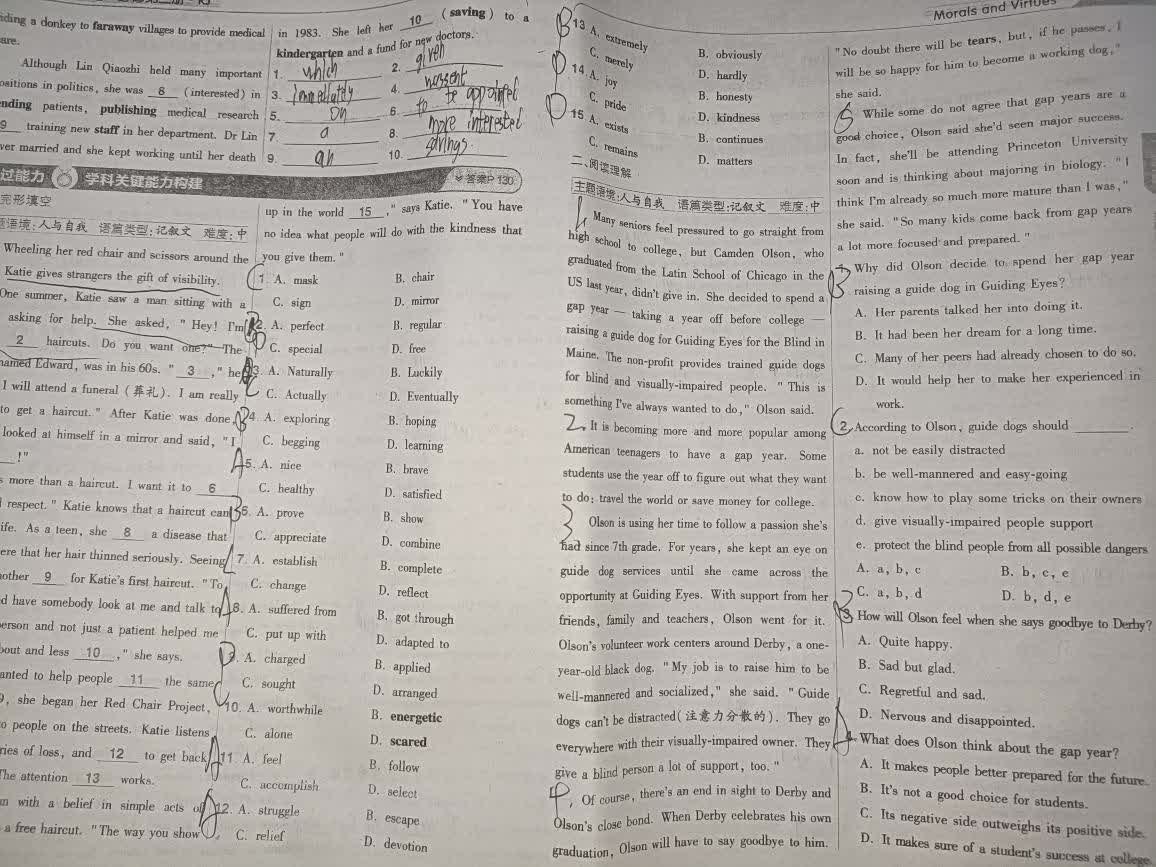 Morals and Virtues
iding a donkey to faraway villages to provide medical
are.
Although Lin Qiaozhi held many important
ositions in politics, she was 8 (interested) in
nding patients, publishing medical research
9 training new staff in her department. Dr Lin
ver married and she kept working until her death
in 1983. She left her 10 (saving) to a
kindergarten and a fund for new doctors.
1. which 2. given
3. Immediately 4.
5. on 6. to be appointed
7. a 8. more interested
9. an 10. savings.
过能力 学科关键能力构建 答案P 130
完形填空
题语境:人与自我 语篇类型:记叙文 难度:中
Wheeling her red chair and scissors around the
Katie gives strangers the gift of visibility.
One summer, Katie saw a man sitting with a
asking for help. She asked, "Hey! I'm
2 haircuts. Do you want one?" The
named Edward, was in his 60s. " 3 ," he
I will attend a funeral (葬礼). I am really
to get a haircut." After Katie was done,
looked at himself in a mirror and said, "I
!"
s more than a haircut. I want it to 6
respect." Katie knows that a haircut can
ife. As a teen, she 8 a disease that
ere that her hair thinned seriously. Seeing
nother 9 for Katie's first haircut. "To
d have somebody look at me and talk to
erson and not just a patient helped me
bout and less 10 ," she says.
anted to help people 11 the same
9, she began her Red Chair Project,
o people on the streets. Katie listens
ries of loss, and 12 to get back
The attention 13 works.
n with a belief in simple acts of
a free haircut. "The way you show
up in the world 15 ," says Katie. "You have
no idea what people will do with the kindness that
you give them."
1. A. mask B. chair
C. sign D. mirror
2. A. perfect B. regular
C. special D. free
3. A. Naturally B. Luckily
C. Actually D. Eventually
4. A. exploring B. hoping
C. begging D. learning
5. A. nice B. brave
C. healthy D. satisfied
6. A. prove B. show
C. appreciate D. combine
7. A. establish B. complete
C. change D. reflect
8. A. suffered from B. got through
C. put up with D. adapted to
9. A. charged B. applied
C. sought D. arranged
10. A. worthwhile B. energetic
C. alone D. scared
11. A. feel B. follow
C. accomplish D. select
12. A. struggle B. escape
C. relief D. devotion
B 13. A. extremely B. obviously
C. merely D. hardly
D 14. A. joy B. honesty
C. pride D. kindness
D 15. A. exists B. continues
C. remains D. matters
二、阅读理解
主题语境:人与自我 语篇类型:记叙文 难度:中
Many seniors feel pressured to go straight from
high school to college, but Camden Olson, who
graduated from the Latin School of Chicago in the
US last year, didn't give in. She decided to spend a
gap year — taking a year off before college —
raising a guide dog for Guiding Eyes for the Blind in
Maine. The non-profit provides trained guide dogs
for blind and visually-impaired people. "This is
something I've always wanted to do," Olson said.
2. It is becoming more and more popular among
American teenagers to have a gap year. Some
students use the year off to figure out what they want
to do; travel the world or save money for college.
3 Olson is using her time to follow a passion she's
had since 7th grade. For years, she kept an eye on
guide dog services until she came across the
opportunity at Guiding Eyes. With support from her
friends, family and teachers, Olson went for it.
Olson's volunteer work centers around Derby, a one-
year-old black dog. "My job is to raise him to be
well-mannered and socialized," she said. "Guide
dogs can't be distracted(注意力分散的). They go
everywhere with their visually-impaired owner. They
give a blind person a lot of support, too."
4, Of course, there's an end in sight to Derby and
Olson's close bond. When Derby celebrates his own
graduation, Olson will have to say goodbye to him.
"No doubt there will be tears, but, if he passes, I
will be so happy for him to become a working dog,"
she said.
5 While some do not agree that gap years are a
good choice, Olson said she'd seen major success.
In fact, she'll be attending Princeton University
soon and is thinking about majoring in biology. "I
think I'm already so much more mature than I was,"
she said. "So many kids come back from gap years
a lot more focused and prepared."
Why did Olson decide to spend her gap year
raising a guide dog in Guiding Eyes?
A. Her parents talked her into doing it.
B. It had been her dream for a long time.
C. Many of her peers had already chosen to do so.
D. It would help her to make her experienced in
work.
2. According to Olson, guide dogs should ______.
a. not be easily distracted
b. be well-mannered and easy-going
c. know how to play some tricks on their owners
d. give visually-impaired people support
e. protect the blind people from all possible dangers
A. a, b, c B. b, c, e
C. a, b, d D. b, d, e
3. How will Olson feel when she says goodbye to Derby?
A. Quite happy.
B. Sad but glad.
C. Regretful and sad.
D. Nervous and disappointed.
What does Olson think about the gap year?
A. It makes people better prepared for the future.
B. It's not a good choice for students.
C. Its negative side outweighs its positive side.
D. It makes sure of a student's success at college.